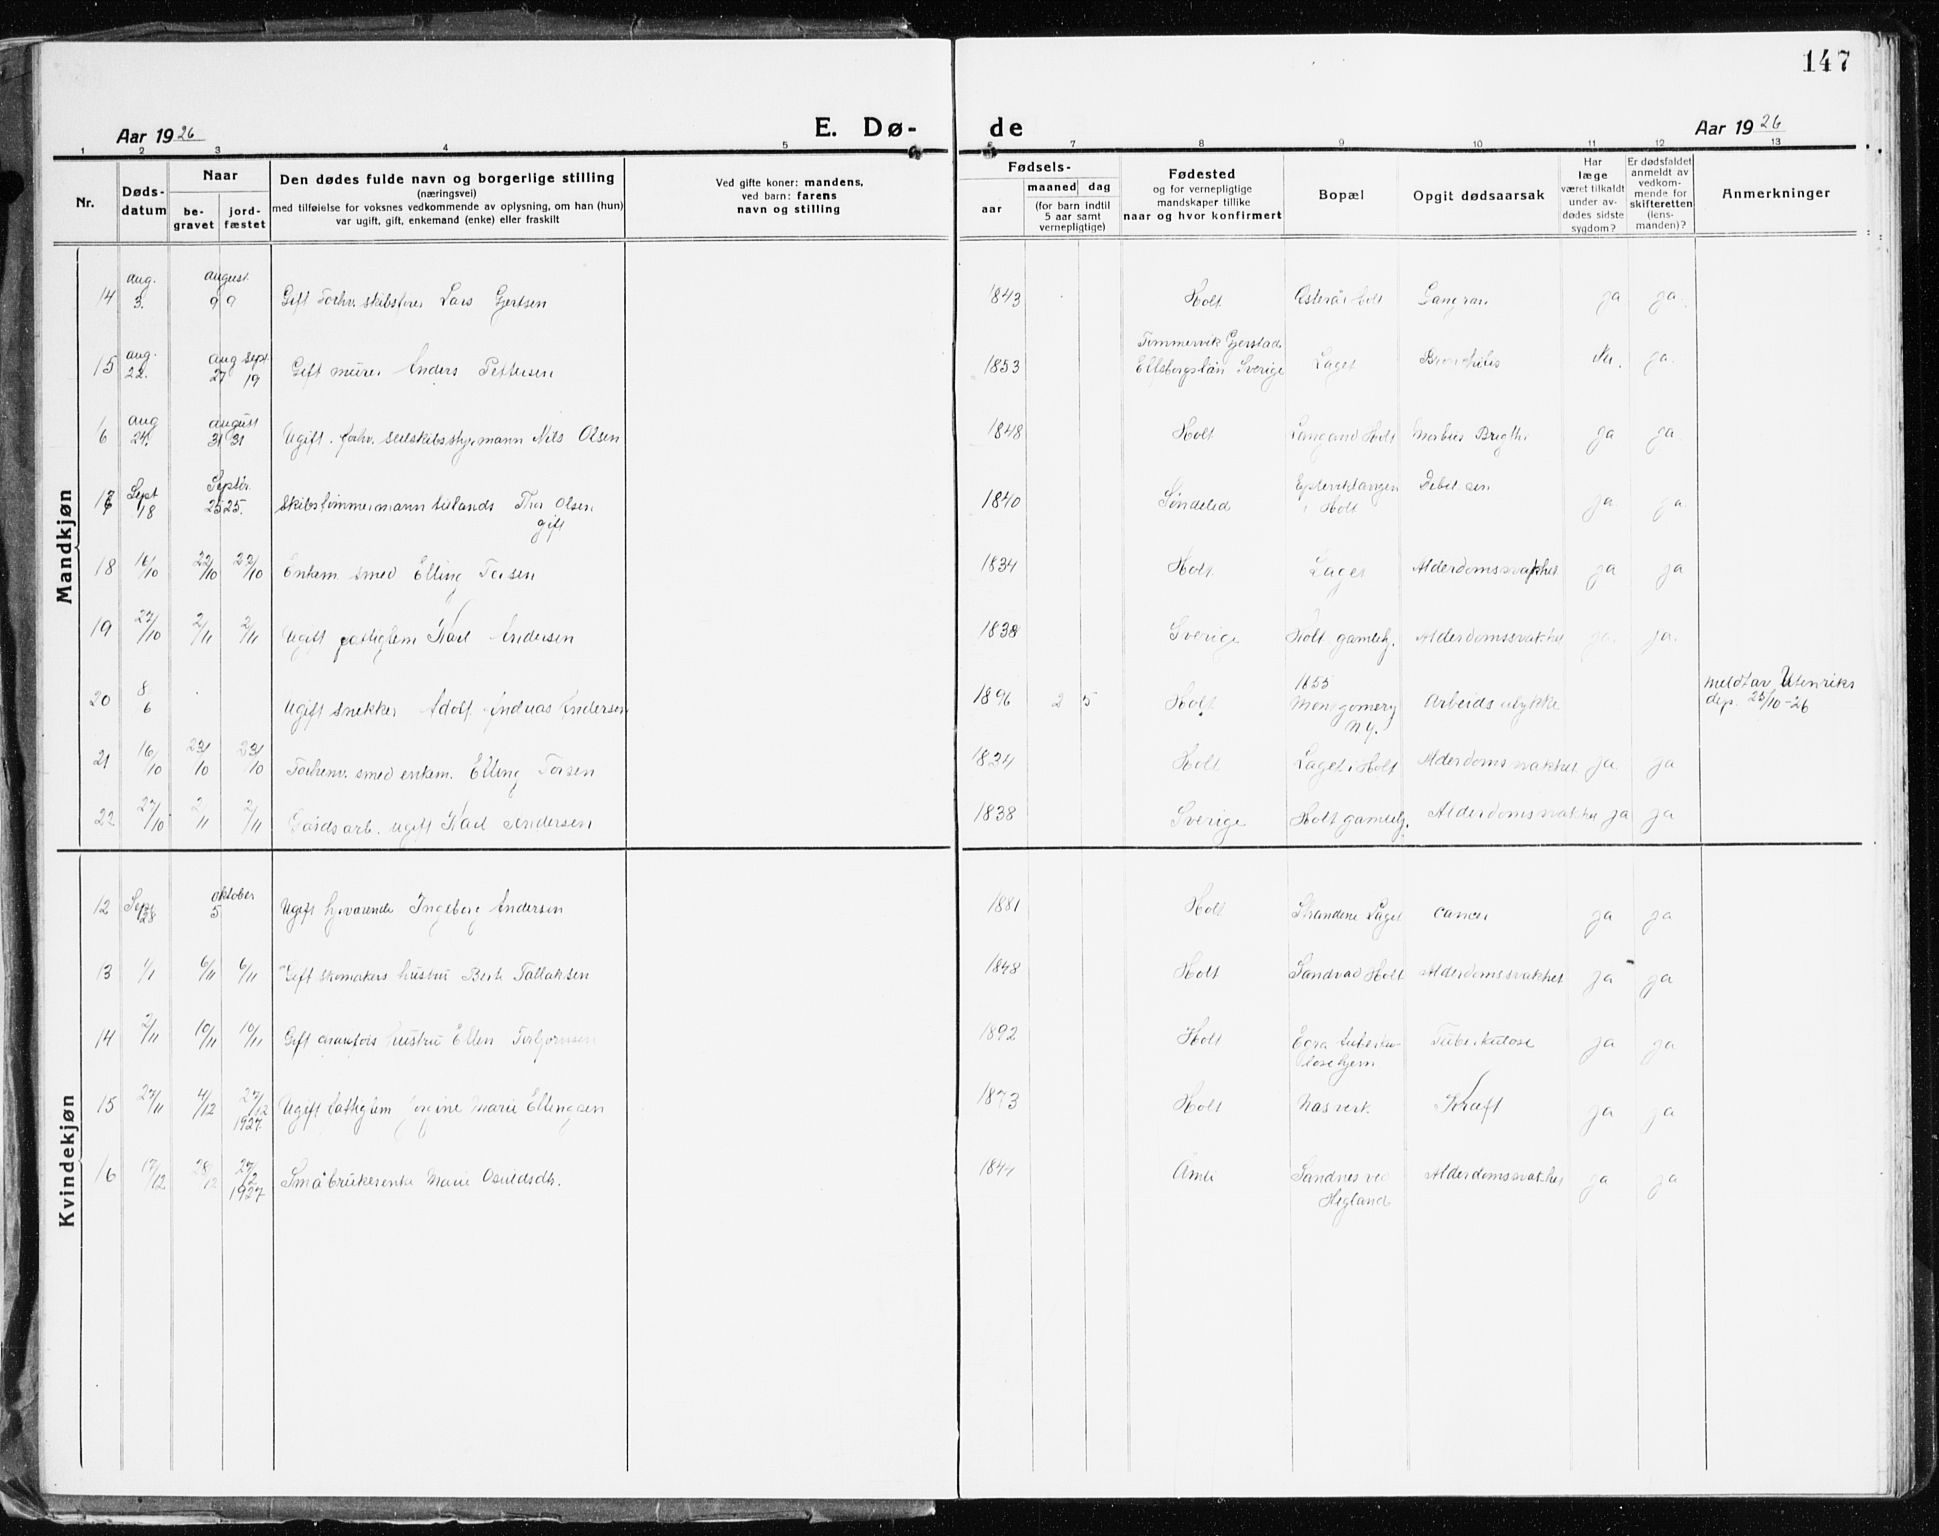 147
Aar 1926
E. Dø-
de
Aar 1926
1 2 3 4 5 6 7 8 9 10 11 12 13
Nr.
Døds-
datum
Naar
be-
gravet
jord-
fæstet
Den dødes fulde navn og borgerlige stilling
(næringsvei)
med tilføielse for voksnes vedkommende av oplysning, om han (hun)
var ugift, gift, enkemand (enke) eller fraskilt
Ved gifte koner: mandens,
ved barn: farens
navn og stilling
Fødsels-
aar
maaned dag
(for barn indtil
5 aar samt
vernepligtige)
Fødested
og for vernepligtige
mandskaper tillike
naar og hvor konfirmert
Bopæl
Opgit dødsaarsak
Har
læge
været tilkaldt
under av-
dødes sidste
sygdom?
Er dødsfaldet
anmeldt av
vedkom-
mende for
skifteretten
(lens-
manden)?
Anmerkninger
Mandkjøn
14 aug. 3. august 9 9 Gift Forhv. skibsfører Lars Gjertsen 1843 Holt Holt Gangræn ja ja.
15 aug. 22. aug 27 sept. 19 Gift murer Anders Pettersen 1853 Timmervik Gjerstad Elfsborgslän Sverige Laget Bronkitis Nei. ja.
16 aug 24. august 31 31 Ugift. forhv. seilskibsstyrmann Nils Olsen 1848 Holt Langand Holt Morbus Brigthi ja ja.
17 Sept 18 Septbr. 25 25. Skibstømmermann tillands Thor Olsen gift 1840 Søndeled Epteviktangen i Holt ja ja
18 16/10 22/10 22/10 Enkem. smed Elling Torsen 1834 Holt Laget Alderdomssvakhet ja ja
19 27/10 2/11 2/11 Ugift fattiglem Karl Andersen 1838 Sverige Holt gamlehj. Alderdomssvakhet ja. ja.
20 8/6 Ugift snekker Adolf Andreas Andersen 1896 2 5 Holt 1655 Montgomery N.Y. Arbeidsulykke Meldt av Utenriks dep. 25/10-26
21 16/10 23/10 23/10 Forhenv. smed enkem. Elling Torsen 1834 Holt Laget i Holt Alderdomssvakhet ja ja
22 27/10 2/11 2/11 Gaardsarb. ugift Karl Andersen 1838 Sverige Holt gamlehj. Alderdomssvakhet ja ja
Kvindekjøn
12 Sept 28 oktober 5 Ugift hjemmeværende Ingeborg Andersen 1881 Holt Strandene Laget cancer ja ja
13 1/11 6/11 6/11 Gift skomakers hustru Berte Tallaksen 1848 Holt Sandvad Holt Alderdomssvakhet ja ja
14 2/11 10/11 10/11 Gift hustru Ellen Torbjørnsen 1892 Holt Egra tuberku- losehjem Tuberkulose ja ja
15 27/11 4/12 27/12 1927. Ugift fattiglem Jorgine Marie Ellingsen 1873 Holt Næsverk Kræft ja ja
16 17/12 28/12 27/2 1927 Småbrukerenke Marie Osuldsdtr. 1844 Åmli Sandnes ved Hegland Alderdomssvakhet ja ja